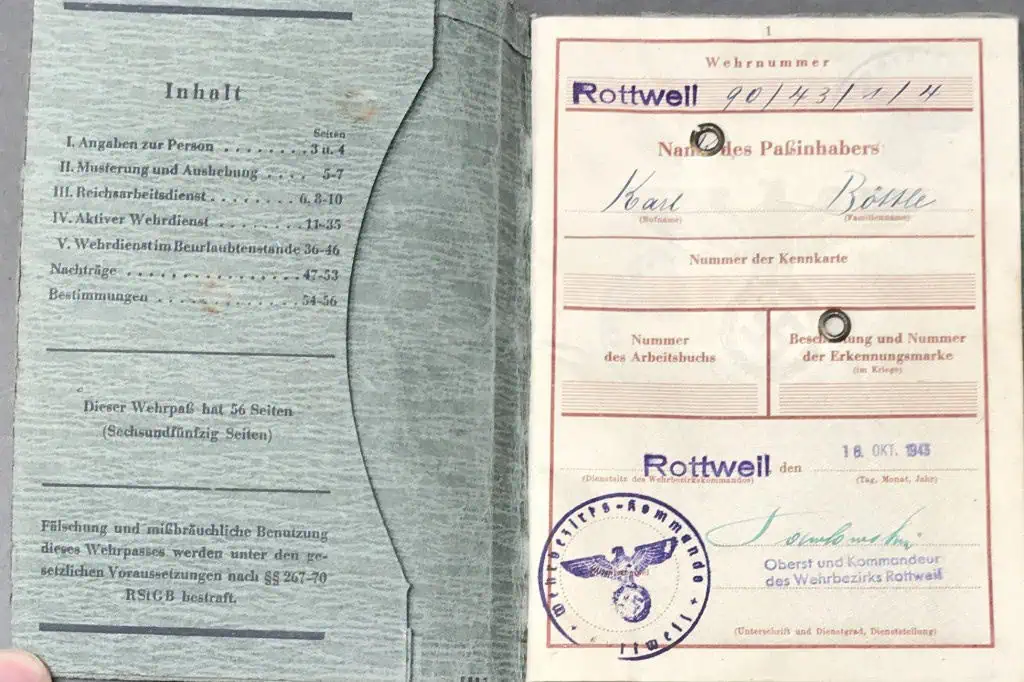 Inhalt
Seiten
I. Angaben zur Person . . . . . . . . 3 u. 4
II. Musterung und Aushebung . . . . 5-7
III. Reichsarbeitsdienst . . . . . . . . 6, 8-10
IV. Aktiver Wehrdienst . . . . . . . . 11-35
V. Wehrdienst im Beurlaubtenstande 36-46
Nachträge . . . . . . . . . . . . . . . 47-53
Bestimmungen . . . . . . . . . . . . 54-56
Dieser Wehrpaß hat 56 Seiten
(Sechsundfünfzig Seiten)
Fälschung und mißbräuchliche Benutzung
dieses Wehrpasses werden unter den ge-
setzlichen Voraussetzungen nach §§ 267-70
RStGB bestraft.
1
Wehrnummer
Rottweil 90/43/1/4
des Paßinhabers
Karl
(Rufname) (Familienname)
Nummer der Kennkarte
Nummer
des Arbeitsbuchs
und Nummer
der Erkennungsmarke
(im Kriege)
Rottweil den 18. OKT. 1943
(Dienstsitz des Wehrbezirkskommandos) (Tag, Monat, Jahr)
Wehrbezirks-Kommando
Rottweil
Oberst und Kommandeur
des Wehrbezirks Rottweil
(Unterschrift und Dienstgrad, Dienststellung)